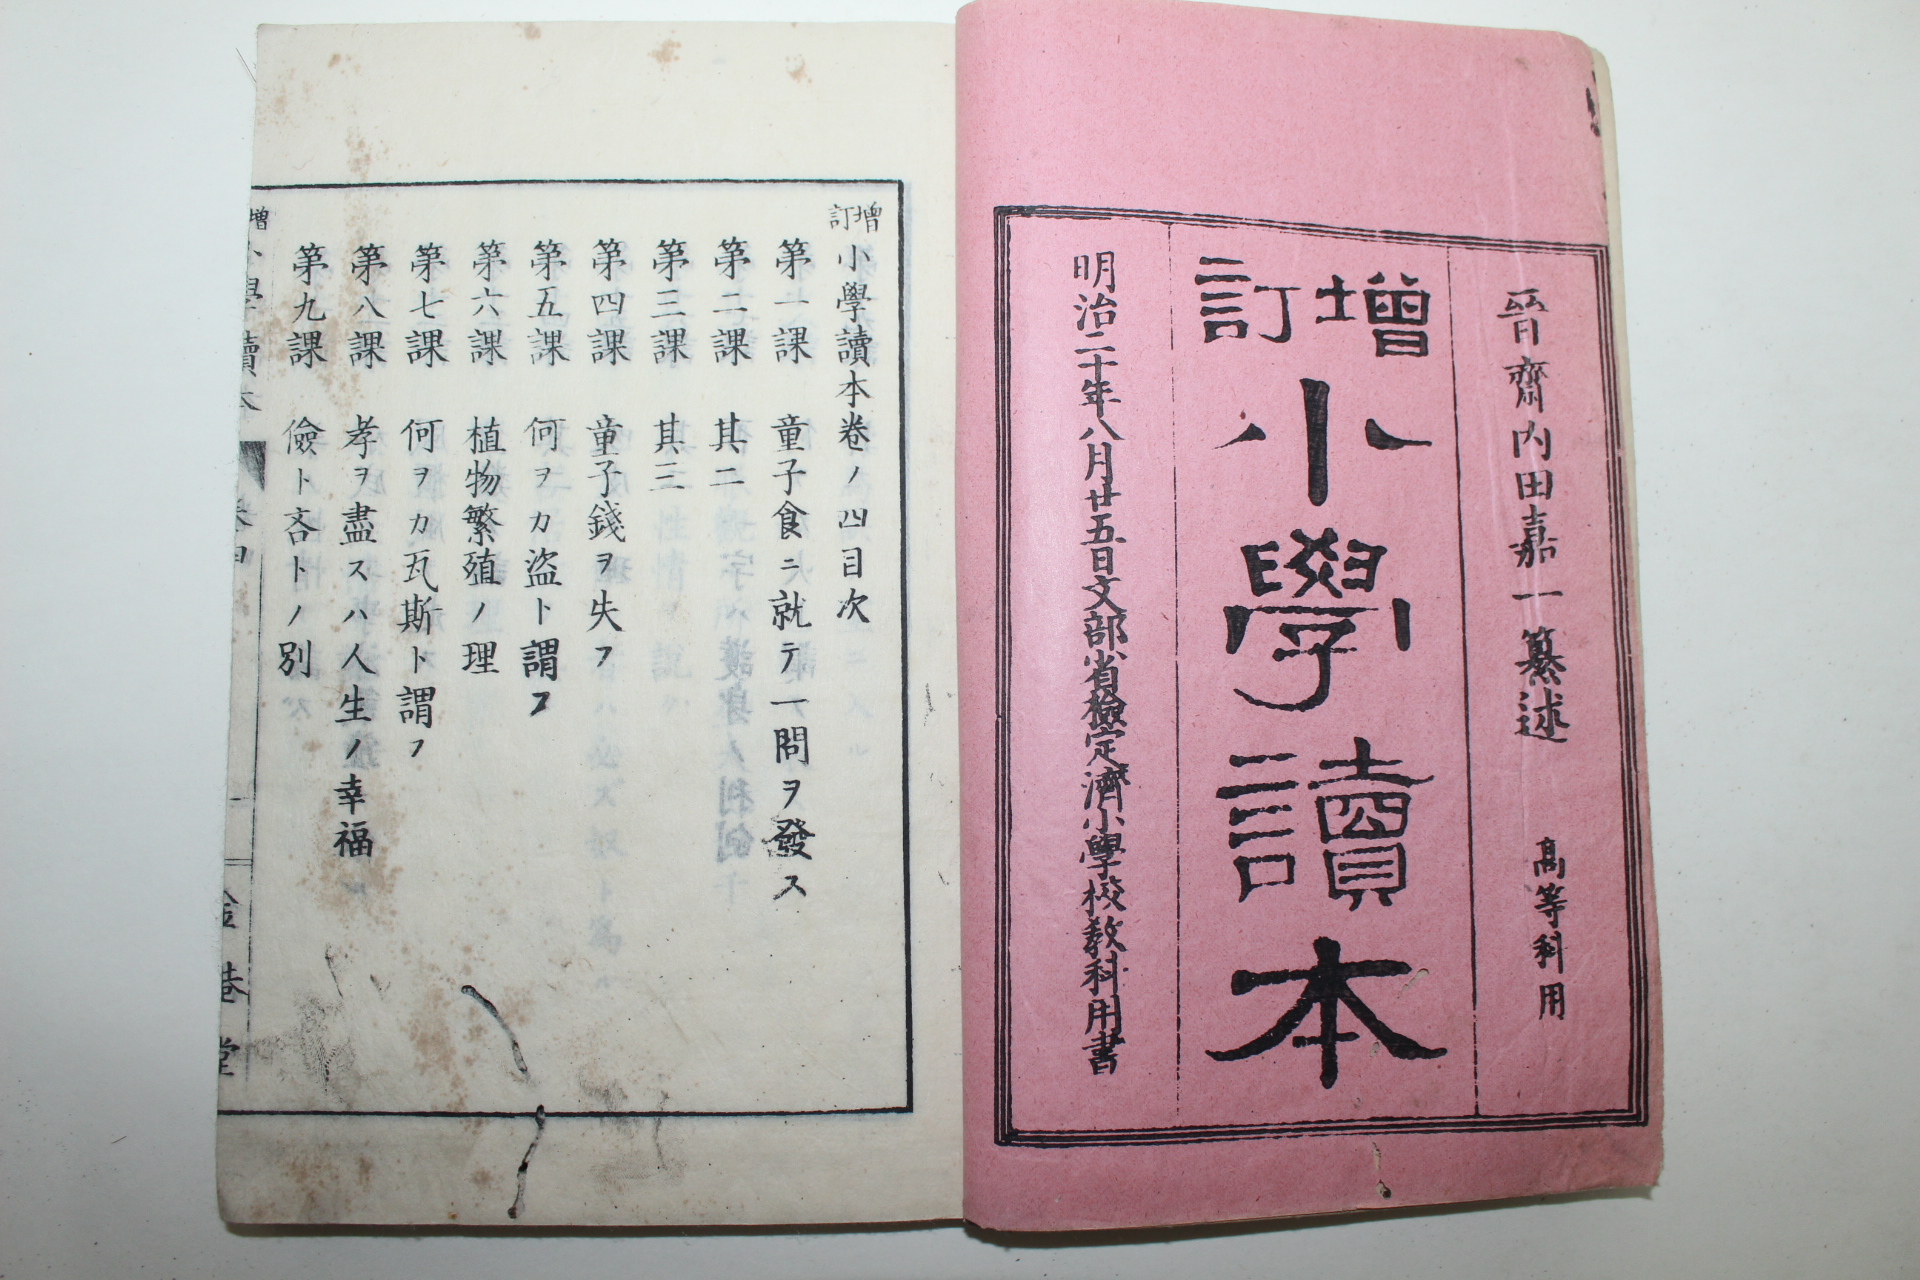 晉齋內田嘉一纂述　高等科用
增訂小學讀本
明治二十年八月廿五日文部省檢定濟小學校教科用書
增訂小學讀本卷ノ四目次
第一課　童子食ニ就テ一問ヲ發ス
第二課　其二
第三課　其三
第四課　童子錢ヲ失フ
第五課　何ヲカ盜ト謂フ
第六課　植物繁殖ノ理
第七課　何ヲカ瓦斯ト謂フ
第八課　孝ヲ盡スハ人生ノ幸福
第九課　儉ト吝トノ別
增　小學讀本　卷四　一　金港堂